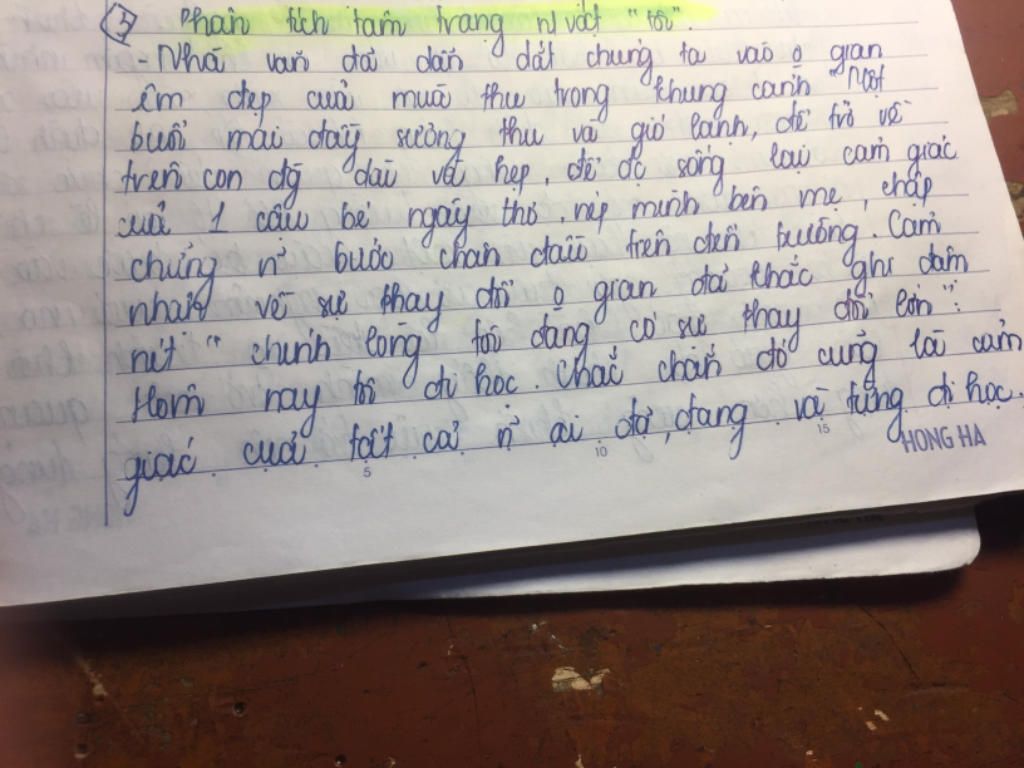 3 Phân tích tâm trạng n/vật "tôi".
- Nhà văn đã dẫn dắt chúng ta vào o gian
êm đẹp của mùa thu trong khung cảnh "Một
buổi mai đầy sương thu và gió lạnh, để trở về
trên con đg dài và hẹp, để đc sống lại cảm giác
của 1 cậu bé ngây thơ, nép mình bên mẹ, chập
chững n~ bước chân đầu trên đến trường. Cảm
nhận về sự thay đổi o gian đã khắc ghi đậm
nét "chính lòng tôi đang có sự thay đổi lớn":
Hôm nay tôi đi học. Chắc chắn đó cũng là cảm
giác của tất cả n~ ai đã, đang và từng đi học.
5 10 15 HONG HA